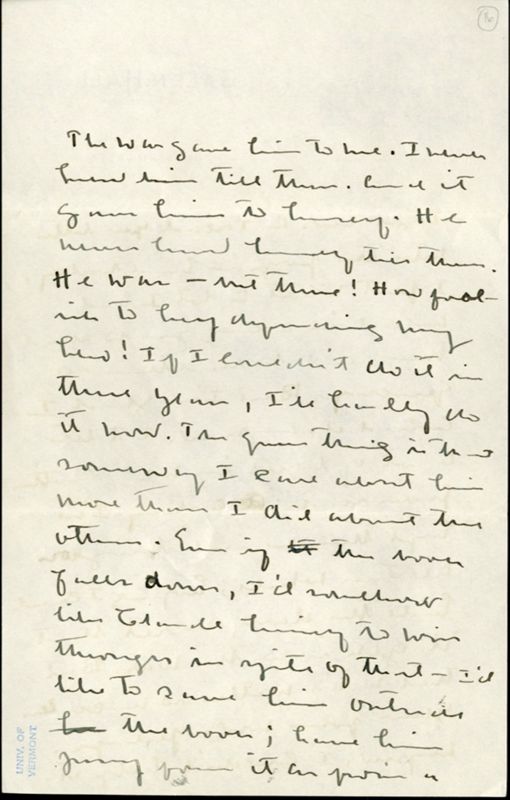 The war gave him to me. I never
knew him till then. And it
gave him to himself. He
never knew himself till then.
He was — not there! How fool-
ish to be defending my
hero! If I couldn't do it in
three years, I'll hardly do
it now. The queer thing is that
someway I care about him
more than I did about the
others. Even if the book
falls down, I'd somehow
like Claude himself to win
through in spite of that — I'd
like to save him outside
the book; have him
jump from it as from a
UNIV. OF
VERMONT